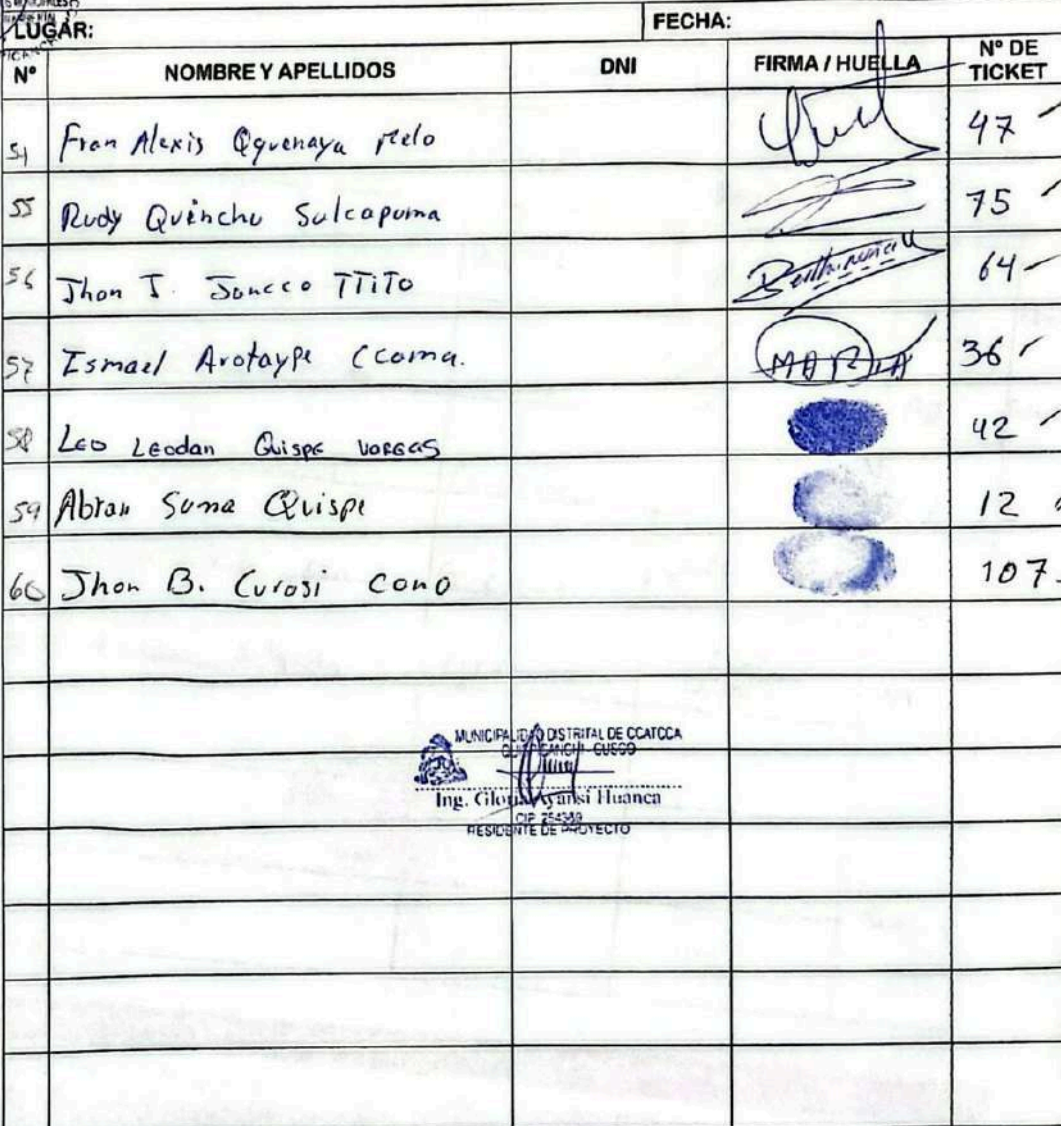 LUGAR: FECHA:
N° NOMBRE Y APELLIDOS DNI FIRMA / HUELLA N° DE TICKET
54 Fran Alexis Qquenaya Melo 47
55 Rudy Quincho Sulcapuma 75
56 Jhon J. Joncco TTiTo 64
57 Ismael Arotaype Ccoma. MARIA 36
58 Leo Leodan Quispe VARGAS 42
59 Abran Suma Quispe 12
60 Jhon B. Curasi cono 107
MUNICIPALIDAD DISTRITAL DE CCATCCA
QUISPICANCHI - CUSCO
Ing. Gloria Ayansi Huanca
CIP 254389
RESIDENTE DE PROYECTO